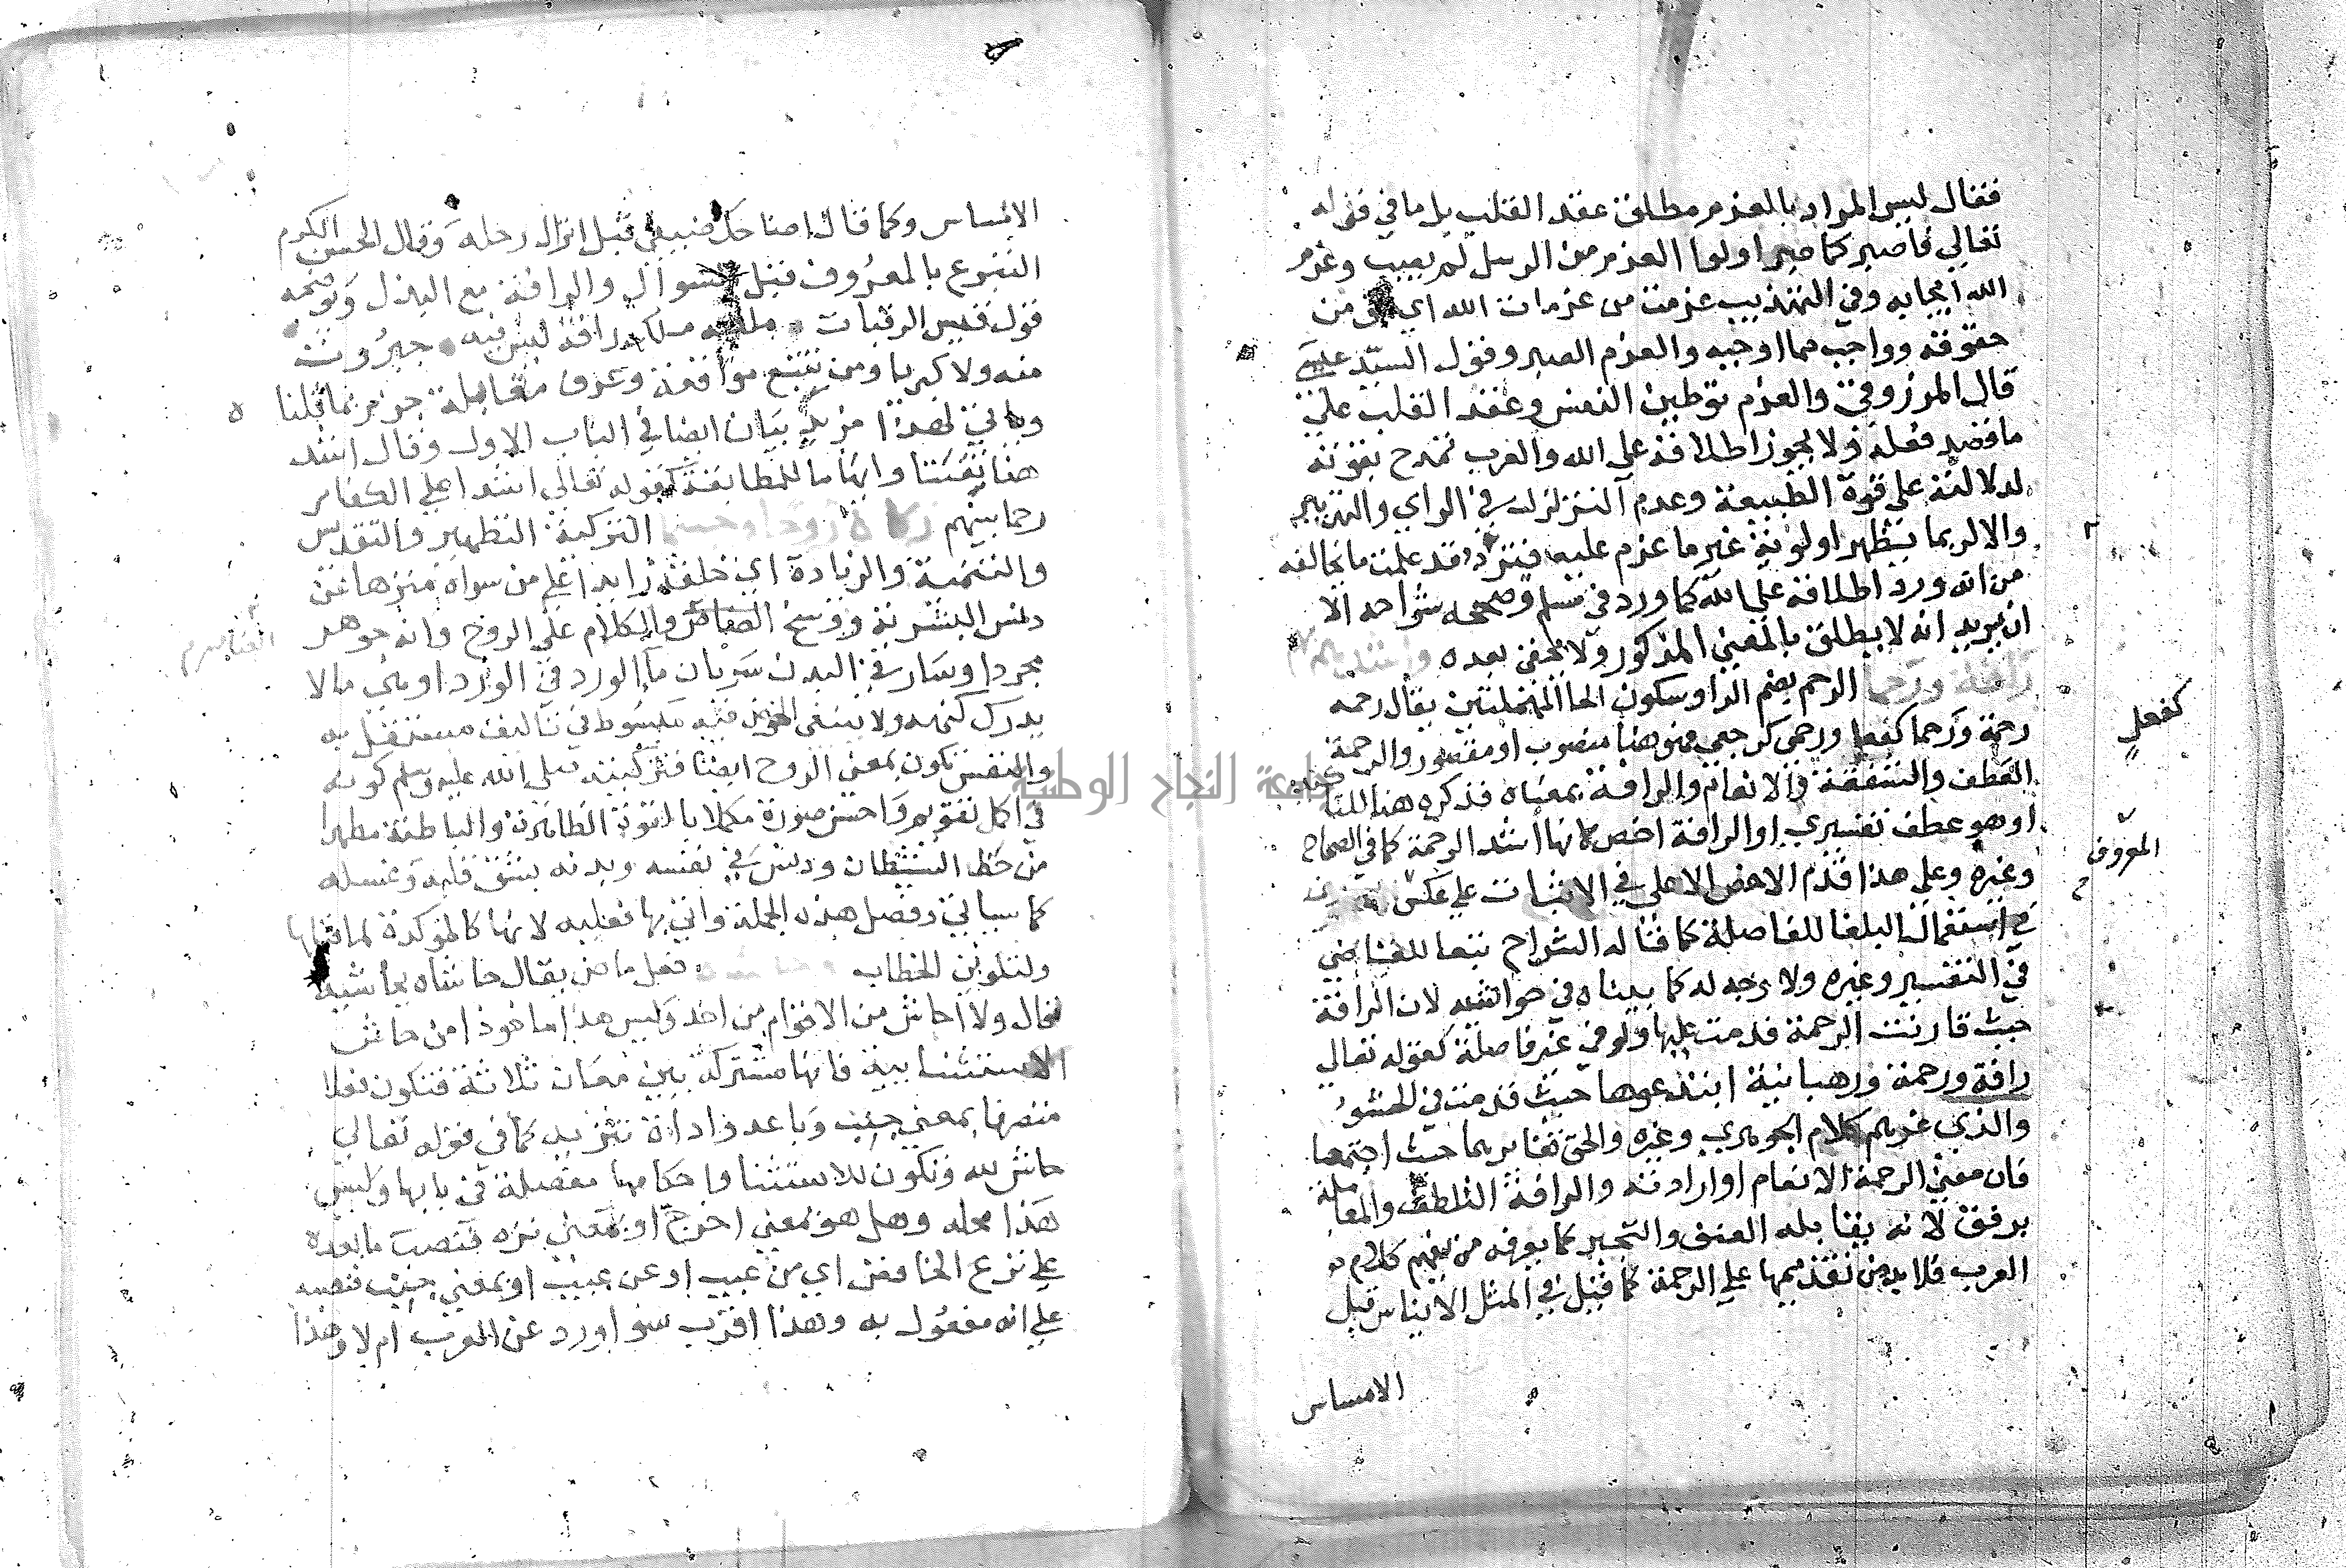 فقال ليس المراد بالعزم مطلق عقد القلب بل ما في قوله
تعالي فاصبر كما صبر اولوا العزم من الرسل لم يصب وعزم
الله ايجابه وفي التهذيب عزمت من عزمات الله اي حق من
حقوقه وواجب مما اوجبه والعزم الصبر وقول السيد عليه
قال المرزوقي والعزم توطين النفس وعقد القلب علي
ما قصد فعله ولا يجوز اطلاقه علي الله والعرب تمدح بقوته
لدلالته علي قوة الطبيعة وعدم التزلزل في الراي والتدبير
والا لربما يظهر اولوية غير ما عزم عليه فتزد قد علمت ما يخالفه
من انه ورد اطلاقه علي الله كما ورد في مسلم وصححه شراحه الا
ان يريد انه لا يطلق بالمعني المذكور ولا يخفي بعده واشدهم بهم
رافة ورحما الرحم بضم الرا وسكون الحا المهملتين يقال رحمه
رحمة ورحما كفعل ورحمي كرجعي فهو هنا منصوب او مقصور والرحمة
كفعل
العطف والشفقة والانعام والرافة بمعناه فذكره هنا للتا كيد
او هو عطف تفسيري او الرافة اخص لانها اشد الرحمة كما في الصحاح
المعروف
وغيره وعلي هذا قدم الاخص الاعلي في الاثبات علي عكس المعروف
في استعمال البلغا للفاصلة كما قاله الشراح تبعا للقاضي
في التفسير وغيره ولا وجه له كما بيناه في حواشيه لان الرافة
حيث قارنت الرحمة قدمت عليها ولو في غير فاصلة كقوله تعالي
رافة ورحمة ورهبانية ابتدعوها حيث قدمت في الحشو
والذي غرهم كلام الجوهري وغيره والحق تغايرهما حيث اجتمعا
فان معني الرحمة الانعام او ارادته والرافة التلطف والمعاملة
برفق لانه يقابله العنف والتجبر كما يعرفه من يفهم كلام
العرب فلا بد من تقديمها علي الرحمة كما قيل في المثل الايناس قبل
الامساس
الابساس وكما قال اضاحك ضيفي قبل انزال رحله وقال الحسن الكرم
التبرع بالمعروف قبل السوال والرافة مع البذل وتوضحه
قول قيس الرقيات ملكه ملك رافة ليس فيه جبروت
منه ولا كبريا ومن تتبع مواقعه وعرف مقابله جزم بما قلنا
وياتي لهذا مزيد بيان ايضا في الباب الاول وقال اشد
هنا تفننا وايهاما للمطابقة كقوله تعالي اشدا علي الكفار
رحما بينهم زكاه روحا وجسما التزكية التطهير والتقديس
والتنمية والزيادة اي خلقه زايدا علي من سواه منزها عن
دنس البشرية ووسخ العناصر والكلام علي الروح وانه جوهر
العناصر م
مجرد او سار في البدن سريان ما الورد في الورد او شي مما لا
يدرك كنهه ولا ينبغي الخوض فيه مبسوط في تاليف مستقل به
والنفس تكون بمعني الروح ايضا فتزكيته صلي الله عليه وسلم كونه
في اكمل تقويم واحسن صورة مكملا بالقوة الظاهرة والباطنة مطهرا
من حظ الشيطان ودنس في نفسه وبدنه بشق قلبه وغسله
كما سياتي وفصل هذه الجملة واتي بها فعليه لانها كالمؤكدة لما قبلها
ولتلوين الخطاب وحاشاه فعل ماض يقال حاشاه يحاشيه
قال ولا احاشي من الاقوام من احد وليس هذا ماخوذا من حاش
الاستثنائية فانها مشتركة بين معان ثلاثة فتكون فعلا
متصرفا بمعني جنب وباعد واداة تنزيه كما في قوله تعالي
حاش لله وتكون للاستثنا واحكامها مفصلة في بابها وليس
هذا محله وهل هو بمعني اخرج او بمعني نزه فنصب ما بعده
علي نزع الخافض اي من عيب او عن عيب او بمعني جنب فنصبه
علي انه مفعول به وهذا اقرب سوا ورد عن العرب ام لا وهذا
جامعة النجاح الوطنية